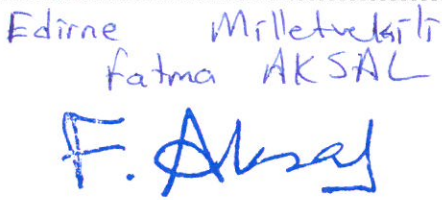 Edirne Milletvekili
Fatma AKSAL
F. Aksal